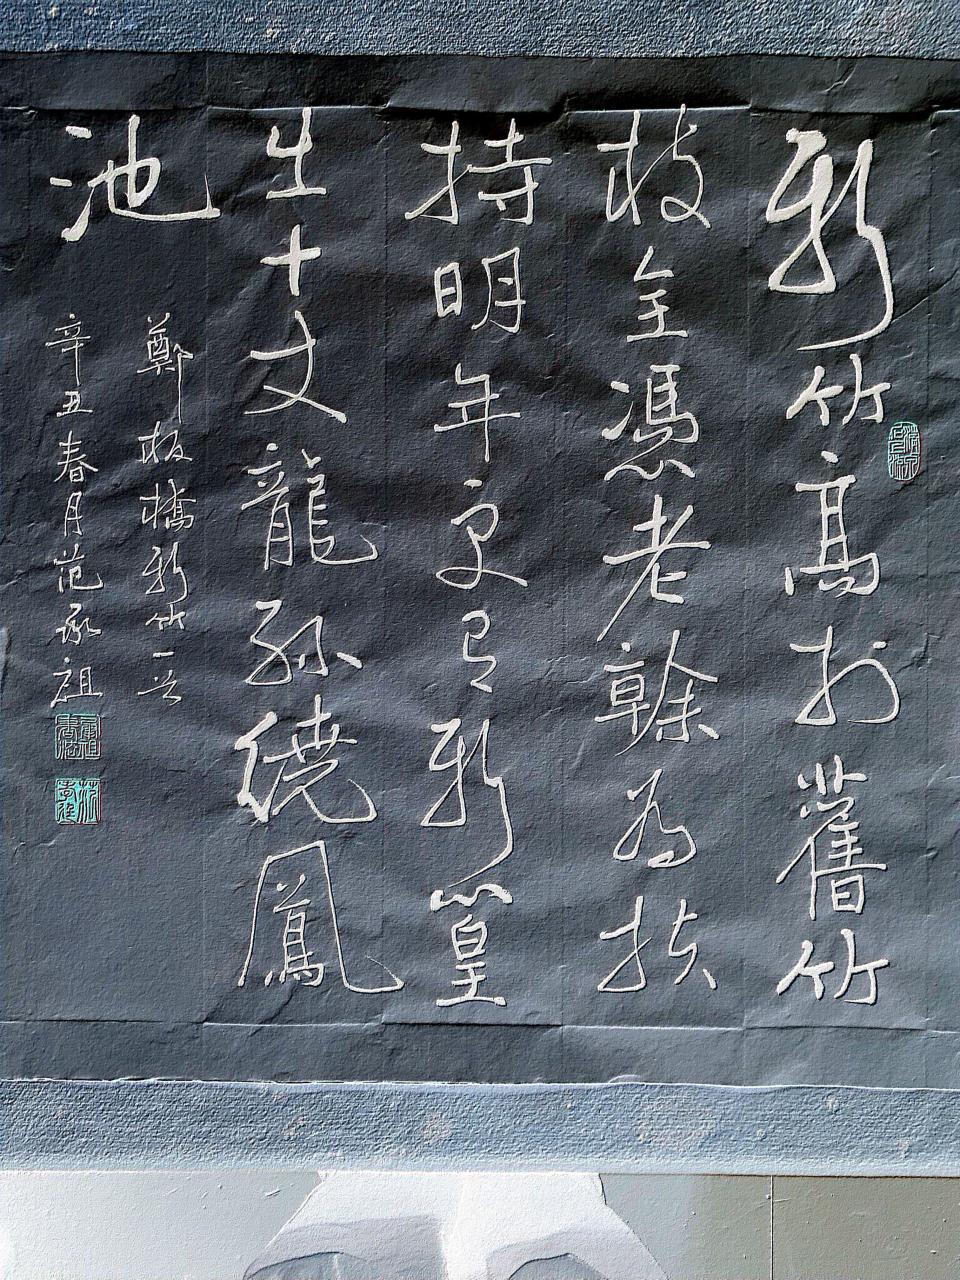 新竹高於舊竹
枝全憑老榦為扶
持明年更有新篁
生十丈龍孫繞鳳
池
鄭板橋新竹一首
辛丑春月范承祖